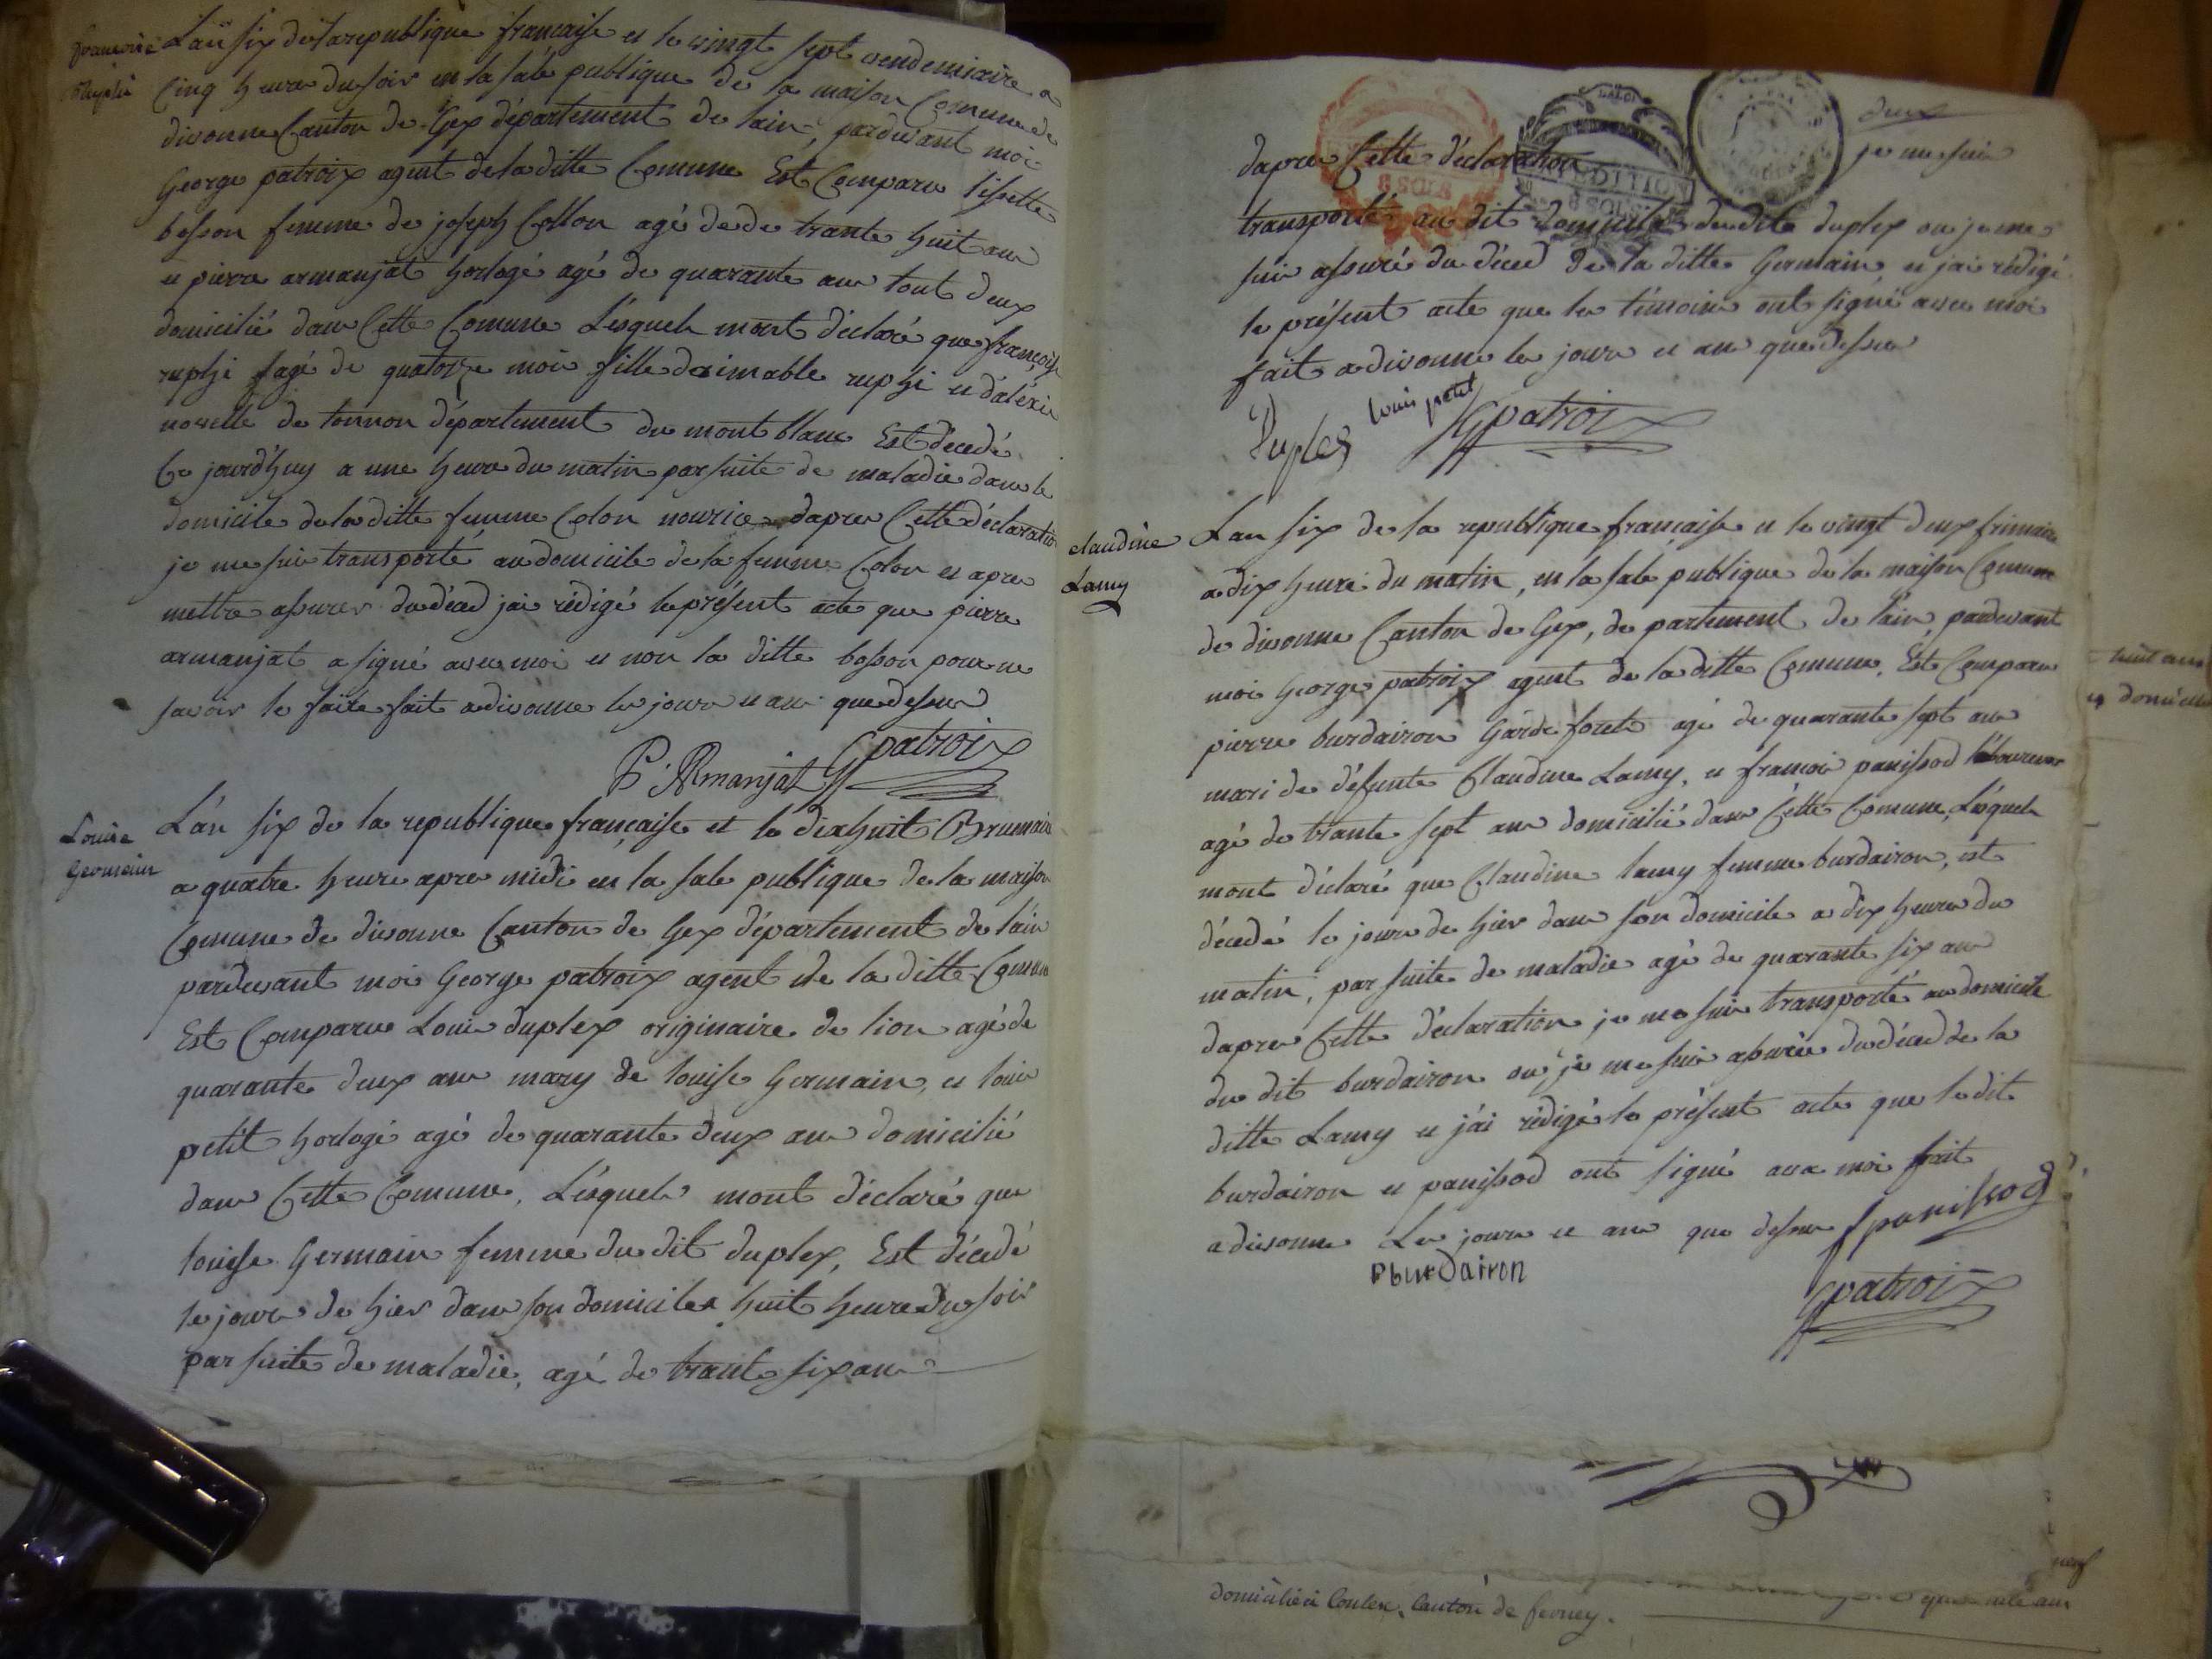 françoise
Ruphi
Lan six de la republique francaise et le vingt sept vendemiaire a
Cinq heure du soir en la sale publique de la maison Comune de
divonne Canton de Gex département de lain, pardevant moi
George patroix agent de la ditte Comune Est Comparu lisette
bosson femme de joseph Collon agé de de trante huit ans
et pierre armanjat horlogé agé de quarante ans tout deux
domicilié dans Cette Comune Lésquels mont déclaré que françoise
ruphi agé de quatorze mois fille daimable ruphi et daléxis
novelle de tonnon département du mont blanc Est décedé
Ce jourd'huy a une heure du matin par suite de maladie dans le
domicile de la ditte femme Colon nourice dapres Cette déclaration
je me suis transporté au domicile de la femme Colon et apres
mettre assurer du déced jai rédigé le présent acte que pierre
armanjat a signé avec moi et non la ditte bosson pour ne
savoir le faire fait a divonne les jours et ans que dessus
P. ARmanjat Gpatroix
Louise
Germain
L'an six de la republique française et le dixhuit Brumaire
a quatre heure apres midi en la sale publique de la maison
Comune de divonne Canton de Gex département de lain
pardevant moi George patroix agent de la ditte Comune
Est Comparu Louis duplex originaire de lion agé de
quarante deux ans mary de louise Germain, et louis
petit horlogé agé de quarante deux ans domicilié
dans Cette Comune, Lésquels mont déclaré que
louise Germain femme du dit duplex, Est décedé
le jour de hier dans son domicile a huit heure du soir
par suite de maladie, agé de trante six ans
deux
dapres Cette déclaration je me suis
transporté au dit domicile du dit duplex ou je me
suis assuré du déced de la ditte Germain et jai rédigé
le présent acte que les témoins ont signé avec moi
fait a divonne les jours et ans que dessus
Duplex louis petit Gpatroix
claudine
Lamy
Lan six de la republique française et le vingt deux frimaire
a dix heure du matin, en la sale publique de la maison Comune
de divonne Canton de Gex, departement de lain, pardevant
moi George patroix agent de la ditte Comune, Est Comparu
pierre burdairon Garde foret agé de quarante sept ans
mari de défunte Claudine Lamy, et francois panissod laboureur
agé de trante sept ans domicilié dans Cétte Comune, Lésquels
mont déclaré que Claudine lamy femme burdairon, est
décedé le jour de hier dans son domicile a dix heure du
matin, par suite de maladie agé de quarante six ans
dapres Cette déclaration je me suis transporté au domicile
du dit burdairon ou je me suis assurée du déced de la
ditte Lamy et jái rédigé le présent acte que le dit
burdairon et panissod ont signé avec moi fait
a divonne Les jours et ans que dessus fpanissod
Pburdairon
Gpatroix
huit ans
domicilié
neuf
domicilié à Coulex, Canton de ferney.